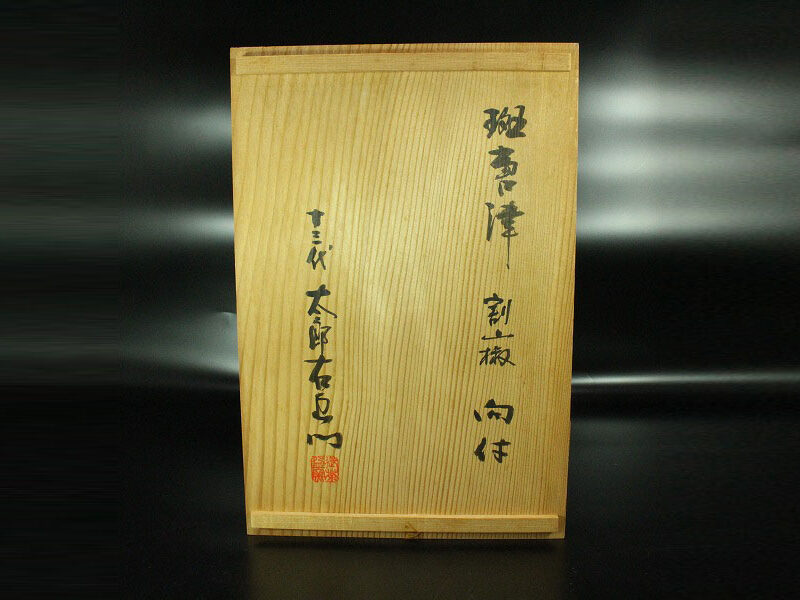 斑唐津 割山椒 向付
十三代 太郎右衛門